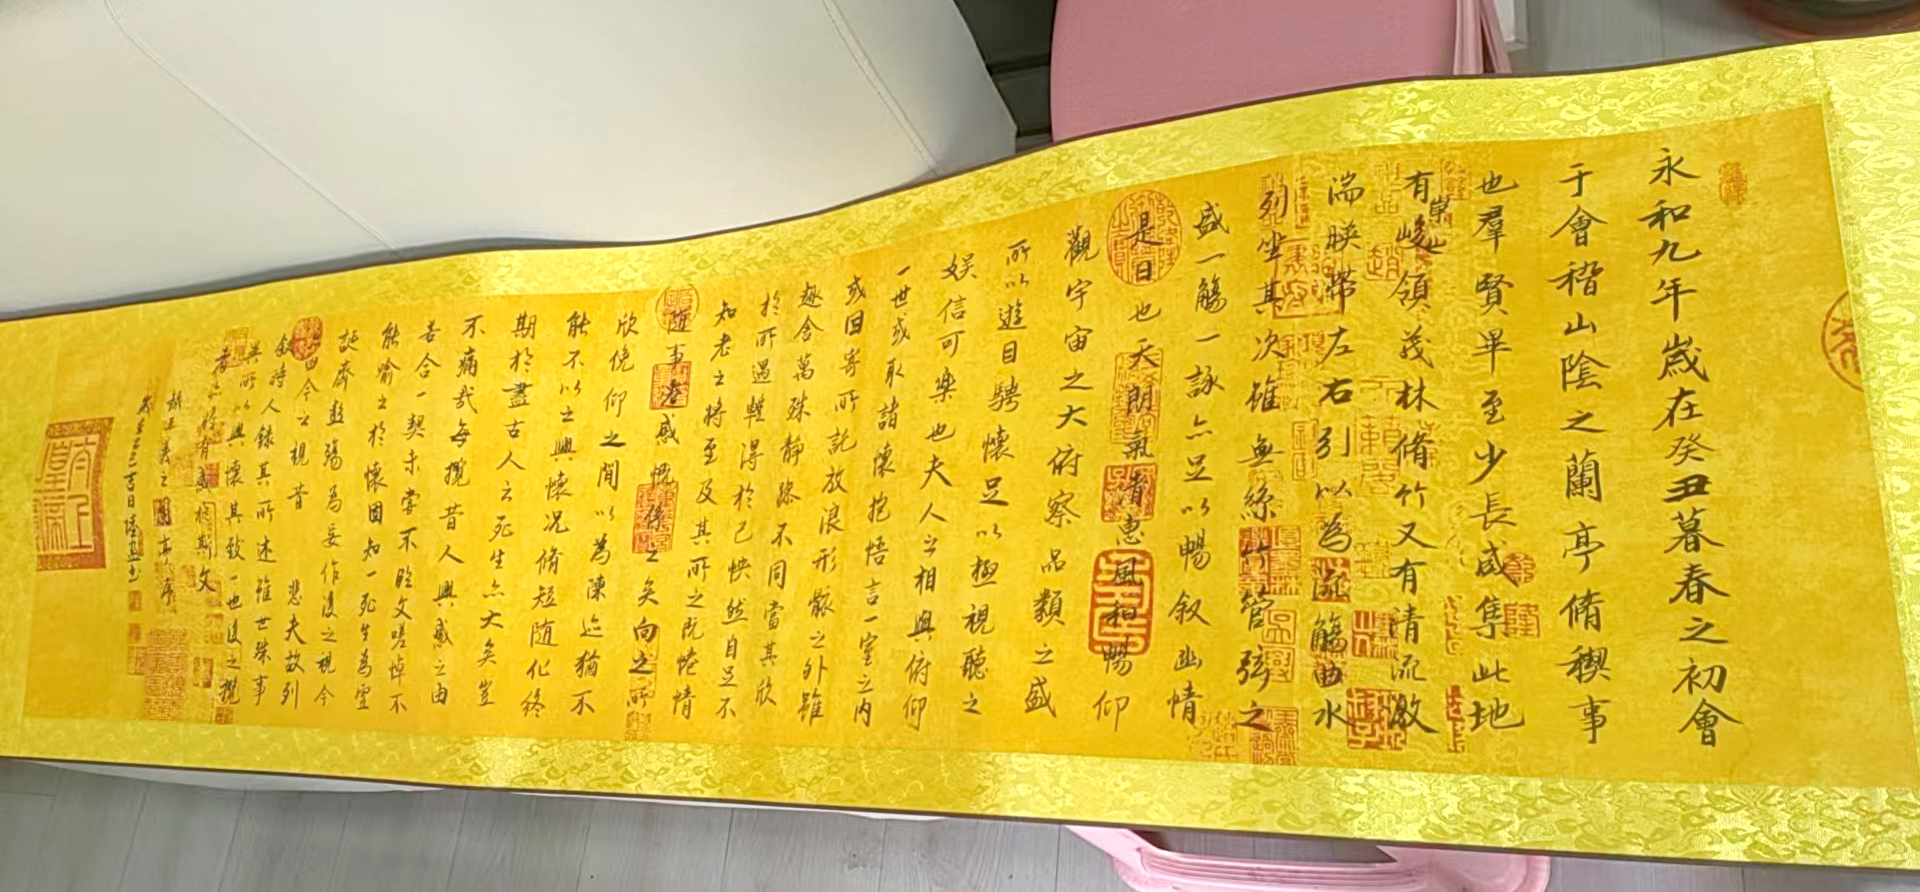 永和九年歲在癸丑暮春之初會
于會稽山陰之蘭亭脩稧事
也羣賢畢至少長咸集此地
有崇山峻領茂林脩竹又有清流激
湍暎帶左右引以為流觴曲水
列坐其次雖無絲竹管弦之
盛一觴一詠亦足以暢叙幽情
是日也天朗氣清惠風和暢仰
觀宇宙之大俯察品類之盛
所以遊目騁懷足以極視聽之
娱信可樂也夫人之相與俯仰
一世或取諸懷抱悟言一室之内
或因寄所託放浪形骸之外雖
趣舍萬殊静躁不同當其欣
於所遇蹔得於己怏然自足不
知老之將至及其所之既惓情
随事遷感慨係之矣向之所
欣俛仰之間以為陳迹猶不
能不以之興懷况脩短随化終
期於盡古人云死生亦大矣豈
不痛哉每攬昔人興感之由
若合一契未嘗不臨文嗟悼不
能喻之於懷固知一死生為虚
誕齊彭殤為妄作後之視今
亦由今之視昔悲夫故列
叙時人録其所述雖世殊事
異所以興懷其致一也後之攬
者亦將有感於斯文
王羲之蘭亭序
吉日